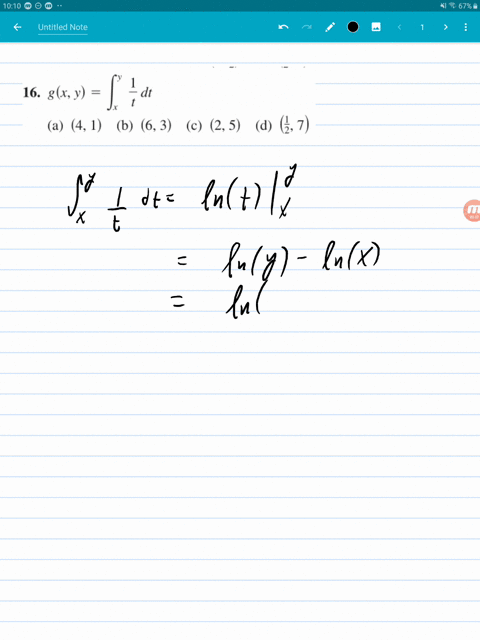 10:10 67%
Untitled Note 1
16. g(x, y) = ∫_x^y 1/t dt
(a) (4, 1) (b) (6, 3) (c) (2, 5) (d) (1/2, 7)
∫_x^y 1/t dt = ln(t) |_x^y
= ln(y) - ln(x)
= ln(